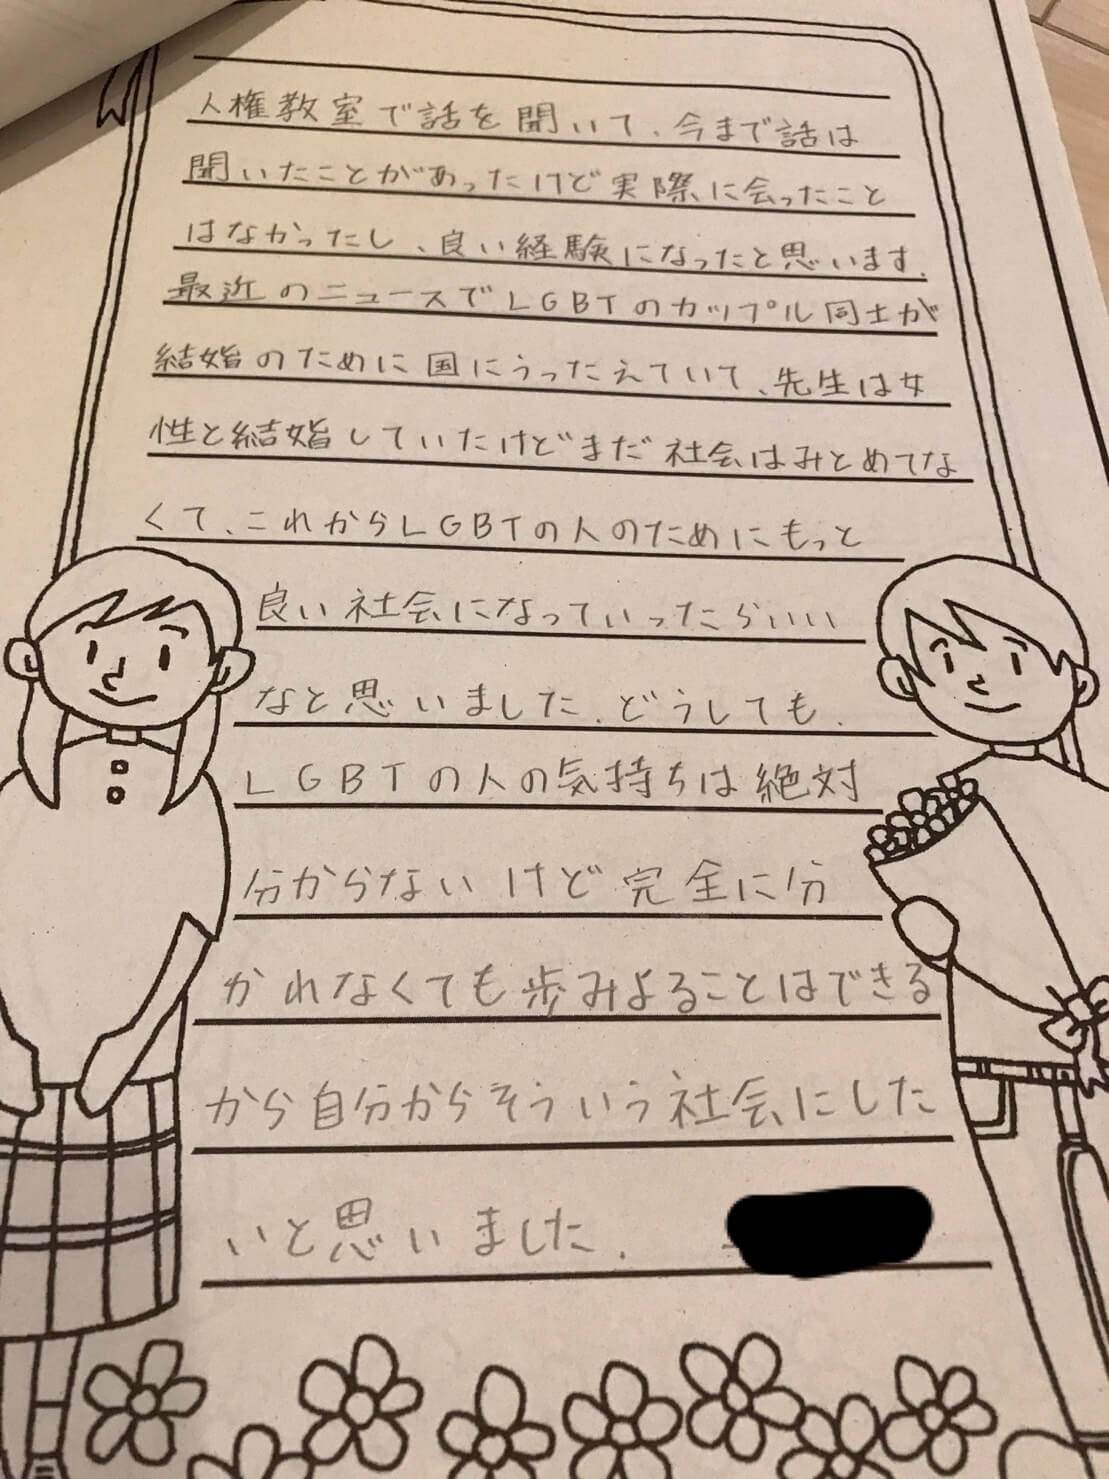 人権教室で話を聞いて、今まで話は
聞いたことがあったけど実際に会ったこと
はなかったし、良い経験になったと思います.
最近のニュースでLGBTのカップル同士が
結婚のために国にうったえていて、先生は女
性と結婚していたけどまだ社会はみとめてな
くて、これからLGBTの人のためにもっと
良い社会になっていったらいい
なと思いました.どうしても.
LGBTの人の気持ちは絶対
分からないけど完全に分
かれなくても歩みよることはできる
から自分からそういう社会にした
いと思いました.